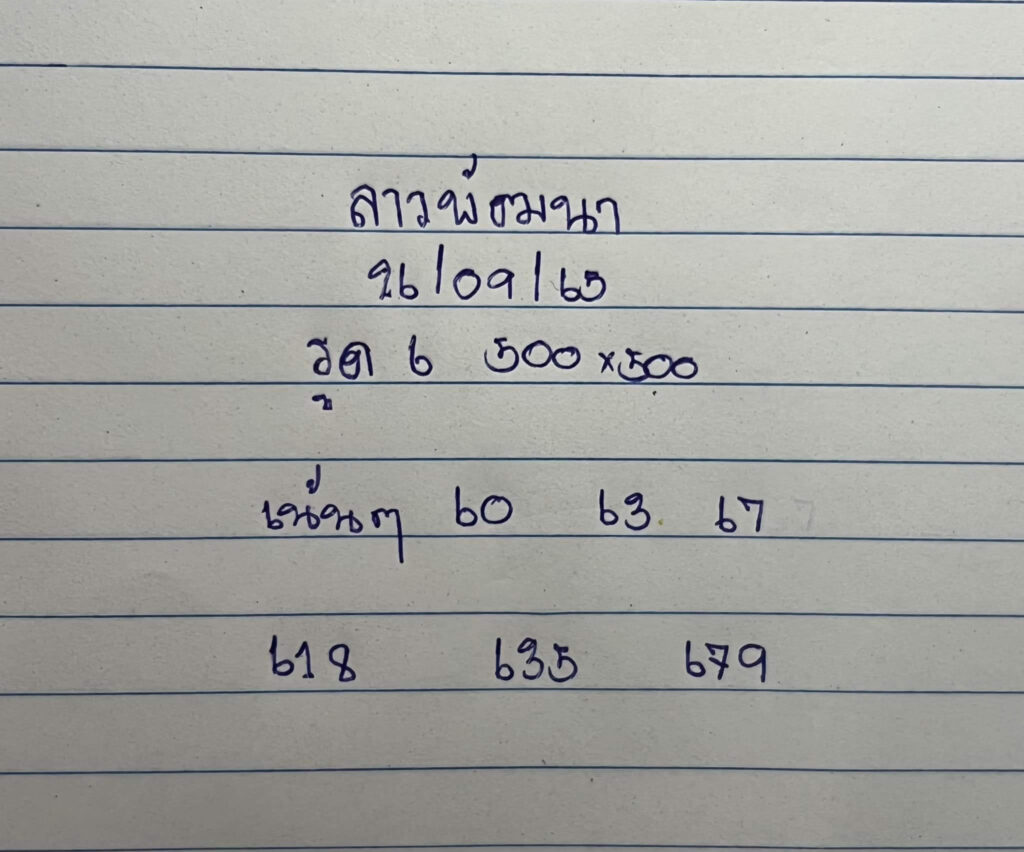 ลาวพัฒนา
26/09/65
รูด 6 500×500
เน้นๆ 60 63 67
618 635 679